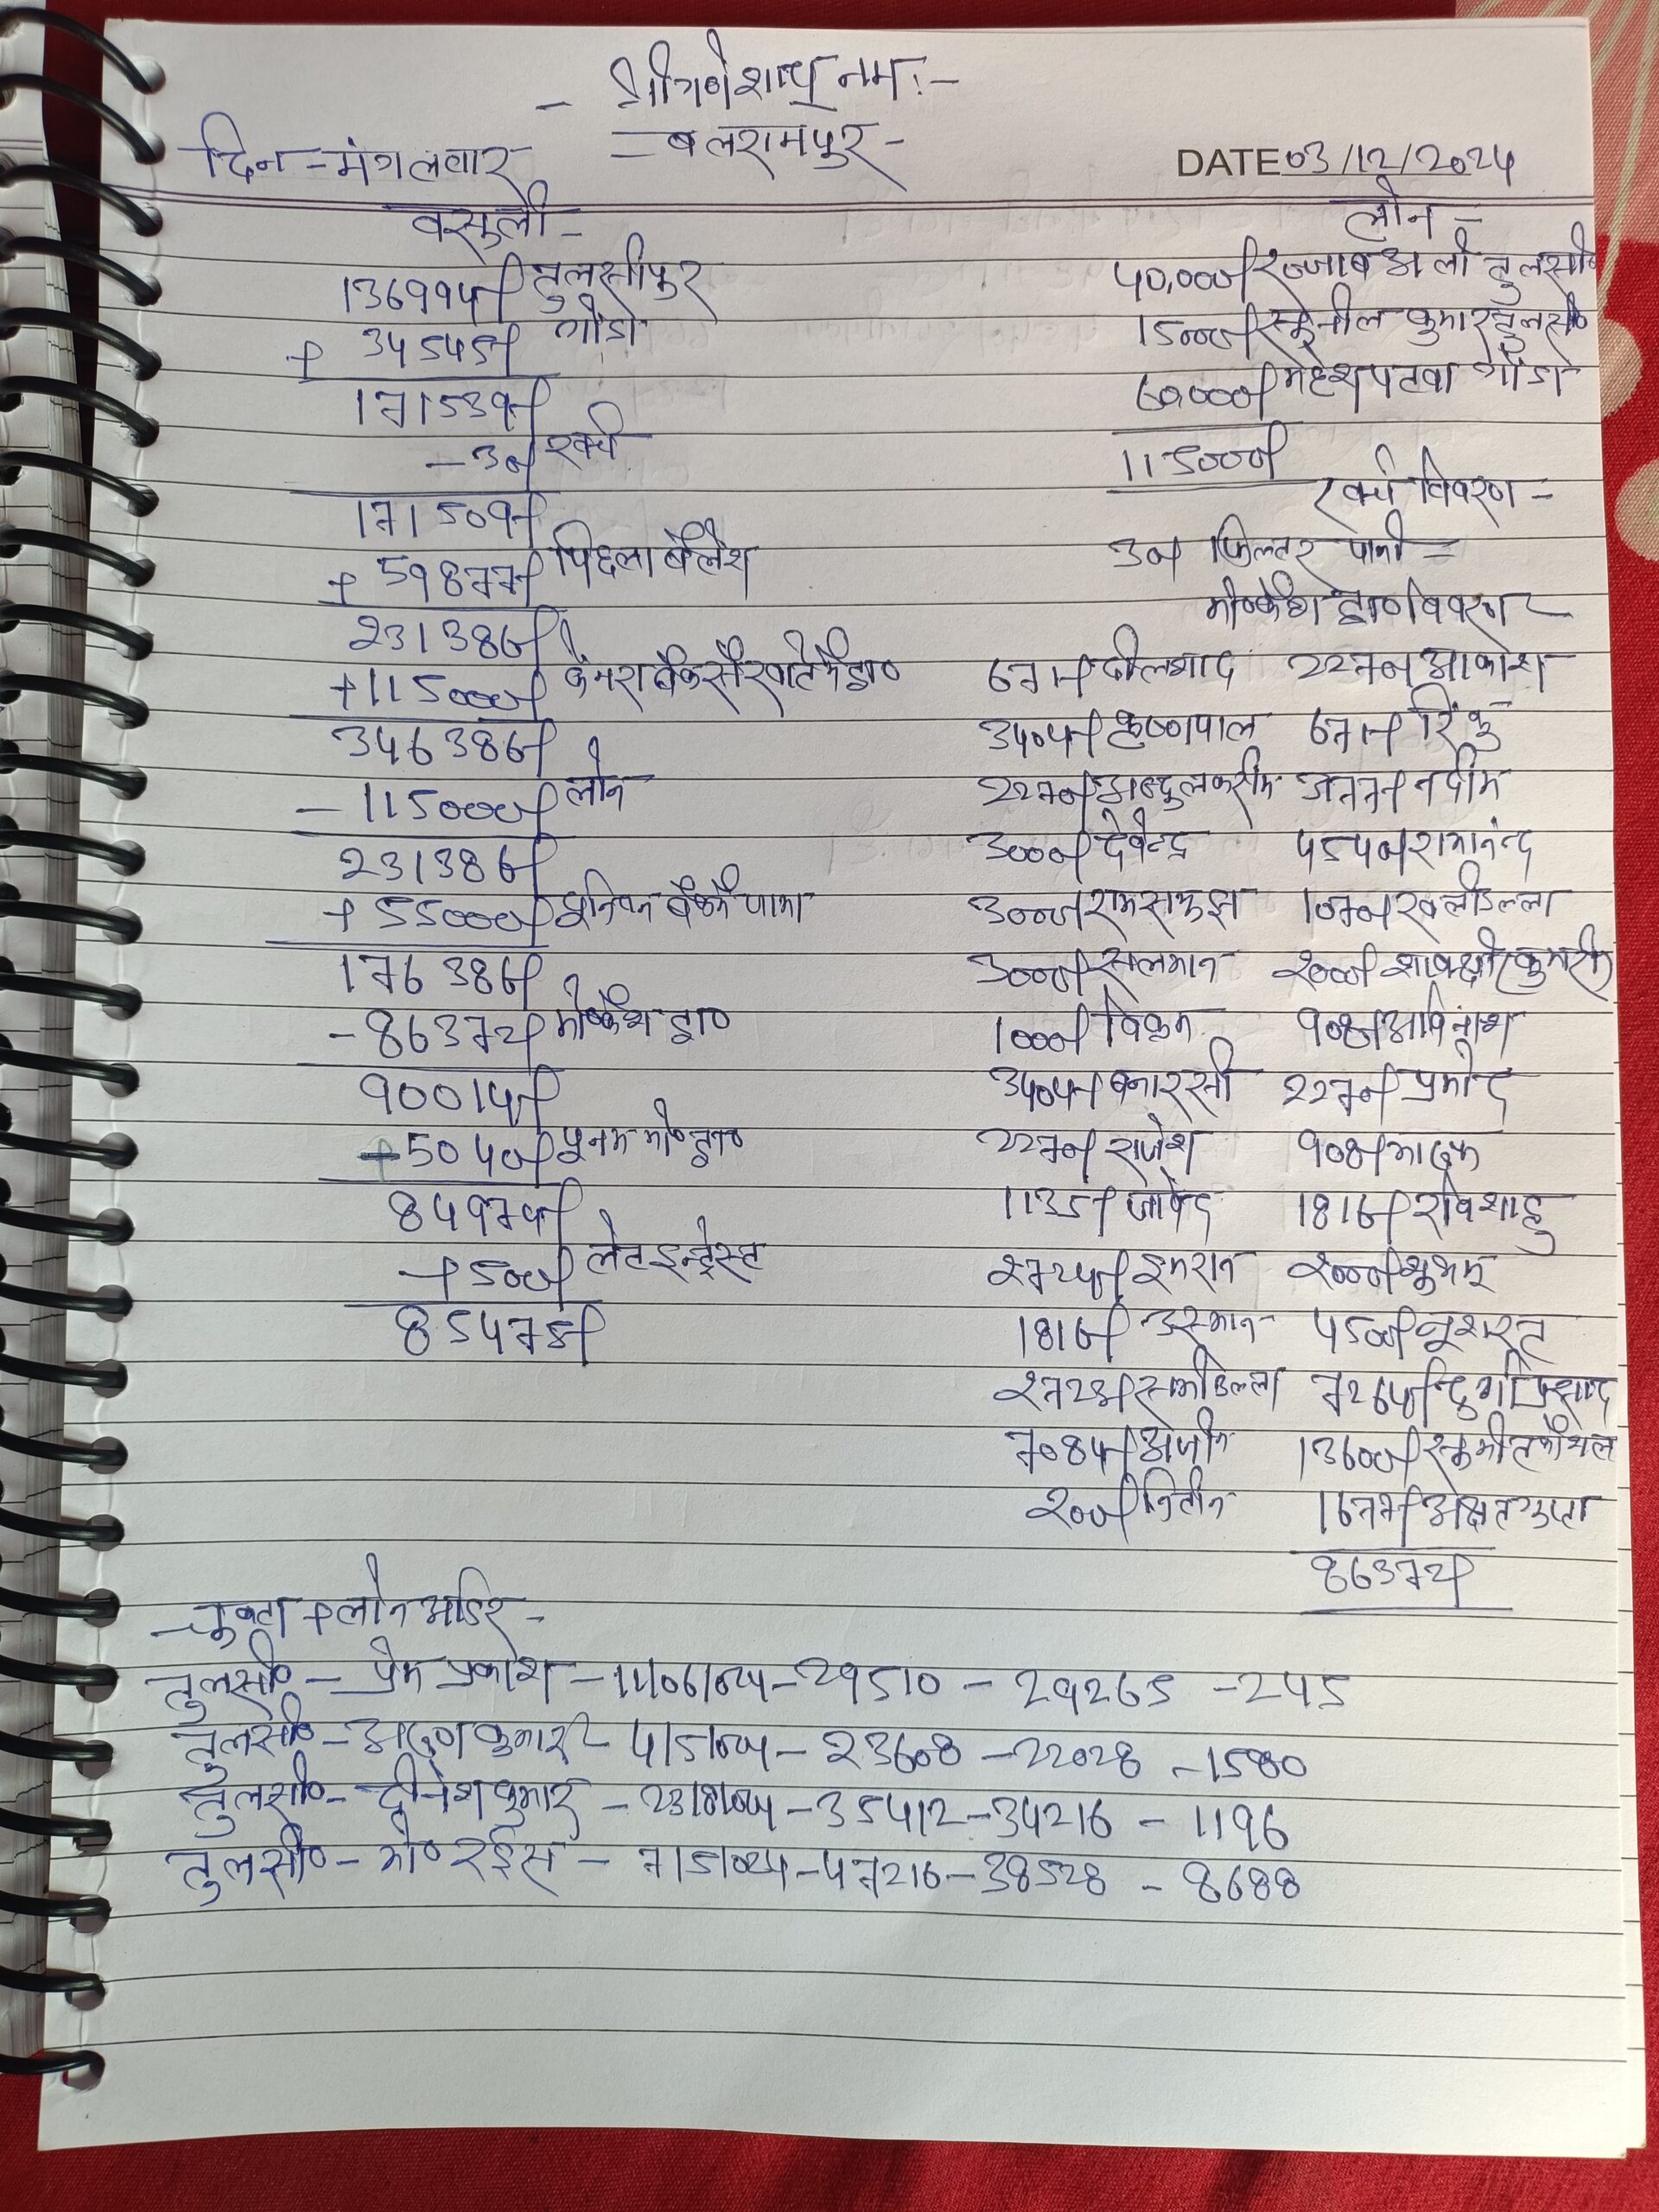 - श्री गणेशाय नमः -
= बलरामपुर -
दिन - मंगलवार
DATE 03/12/2024
वसुली -
136994/- तुलसीपुर
+ 34545/- गोंडा
171539/-
- 30/- खर्च
171509/-
+ 59877/- पिछला बैलेंश
231386/-
+115000/- केनरा बैंक से खाते में ड्रा०
346386/-
- 115000/- लोन
231386/-
+ 55000/- इन्डियन बैंक में जामा
176386/-
- 86372/- मो० कैश ड्रा०
90014/-
+5040/- पुनम मो० ड्रा०
84974/-
+ 500/- लेट इन्ट्रेस्ट
85474/-
लोन -
40,000/- रज्जाब अली तुलसी०
15000/- सुनील कुमार तुलसी०
60,000/- महेश पटवा गोंडा
115000/-
खर्च विवरण -
30/- फिल्टर पानी =
मो० कैश ड्रा० विवरण -
671/- दीलशाद 2270/- आकाश
3404/- कृष्णपाल 671/- रिंकु
2270/- अब्दुल करीम नदीम
3000/- देवेन्द्र 4540/- रामानंद
3000/- रामसमुझ 1070/- खलीउल्ला
3000/- सलमान 2000/- कुमारी
1000/- विक्रम 908/- अविनाश
3404/- बनारसी 2270/- प्रमोद
2270/- राजेश 908/- मारूफ
1135/- जावेद 1816/- रवि शाहु
2724/- इमरान 2000/- शुभम्
1816/- उस्मान 4500/- नुशरत
2723/- समीउल्ला 7264/- दुर्गा प्रसाद
7084/- अजीम 13600/- सुमीत कौशल
200/- नितीन 1677/- अक्षत गुप्ता
86372/-
- चुक्ता + लोन आर्डर -
तुलसी० - प्रेम प्रकाश - 11/06/024 - 29510 - 29265 - 245
तुलसी० - अरूण कुमार - 4/5/024 - 23608 - 22028 - 1580
तुलसी० - दीनेश कुमार - 23/8/024 - 35412 - 34216 - 1196
तुलसी० - मो० रईस - 7/5/024 - 47216 - 38528 - 8688